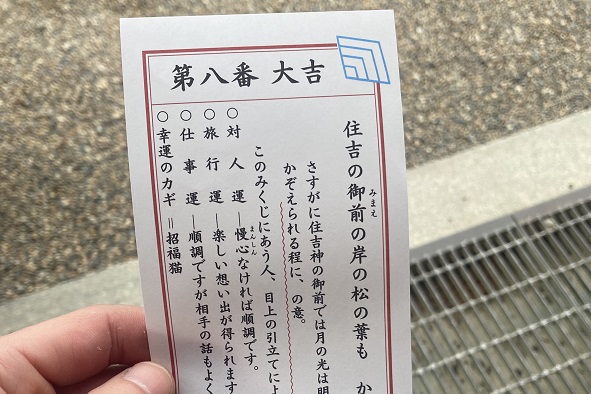 第八番 大吉
住吉の御前の岸の松の葉も か
みまえ
さすがに住吉神の御前では月の光は明
かぞえられる程に、の意。
このみくじにあう人、目上の引立てによ
○対人運―慢心なければ順調です。
まんしん
○旅行運―楽しい想い出が得られます
○仕事運―順調ですが相手の話もよく
○幸運のカギ＝招福猫